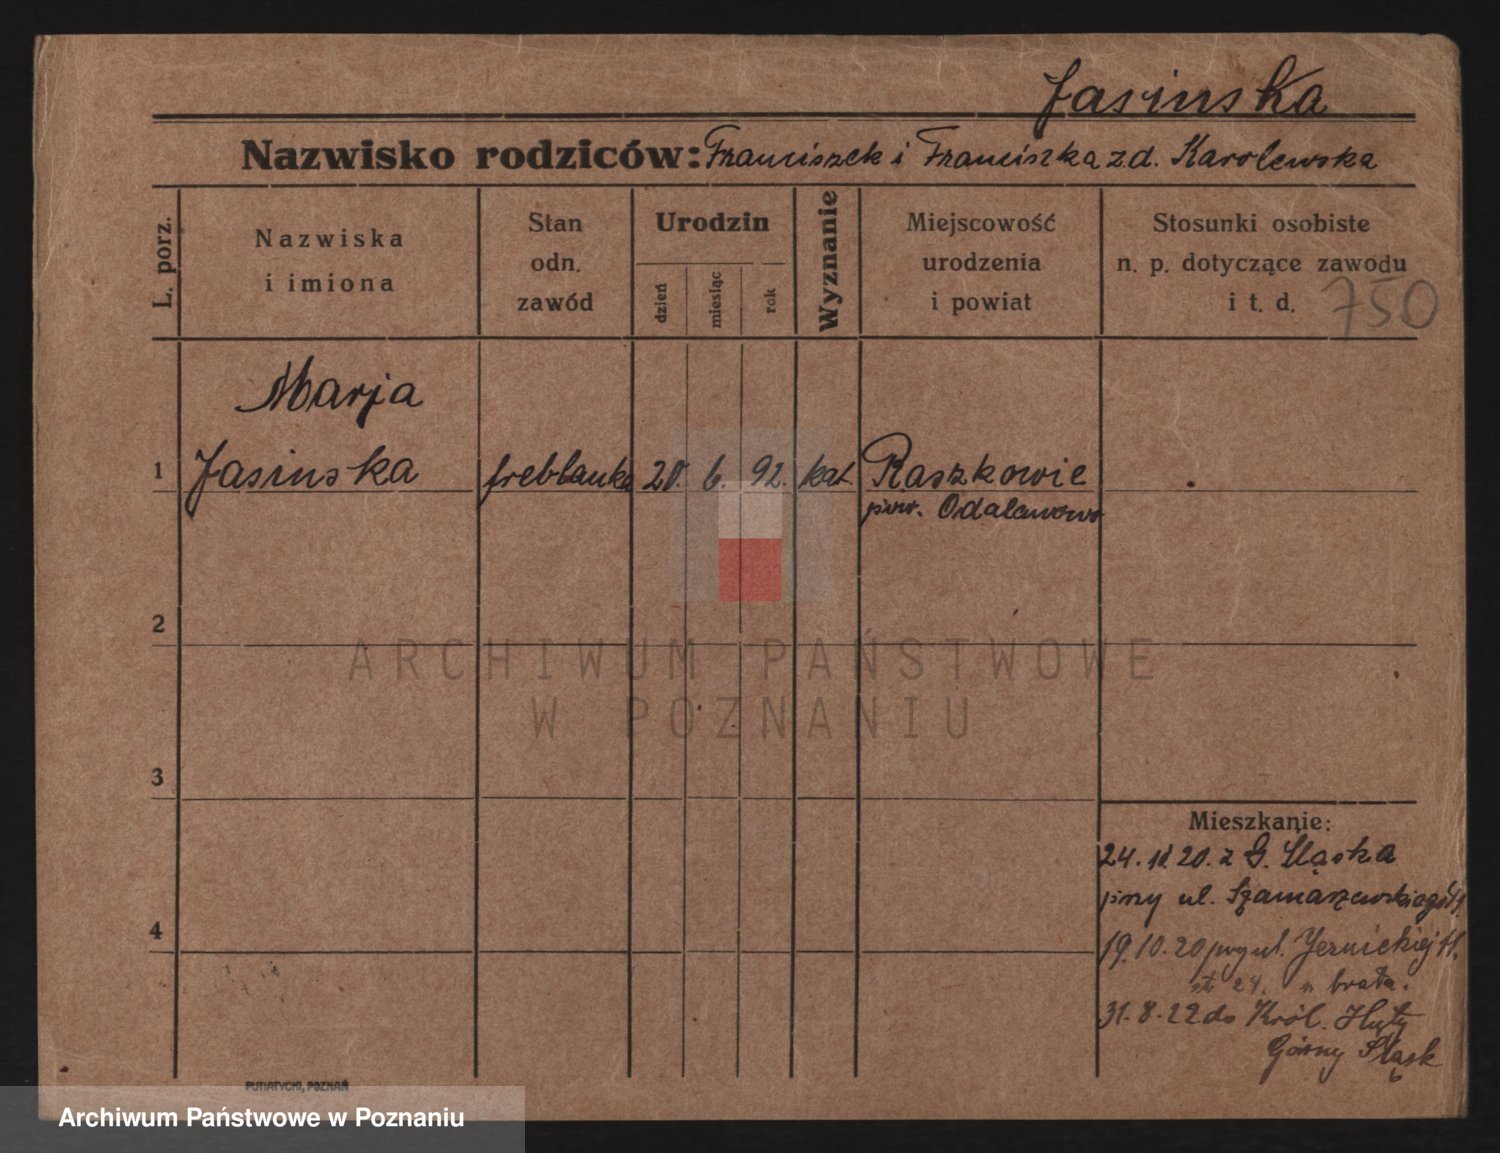 Jasinska
Nazwisko rodziców: Franciszek i Franciszka z.d. Karolewska
L. porz.
Nazwiska
i imiona
Stan
odn.
zawód
Urodzin
dzień
miesiąc
rok
Wyznanie
Miejscowość
urodzenia
i powiat
Stosunki osobiste
n. p. dotyczące zawodu
i t. d.
750
Marja
1 Jasinska freblanka 20. 6. 92. kat. Raszkowie
pow. Odalanowo
2
3
4
Mieszkanie:
24. 20. z G. Śląska
przy ul. Szamarzewskiego
19.10.20 przy ul.
24. u brata.
31.8.22 do Król. Huty
Górny Śląsk
PUTIATYCKI, POZNAŃ
ARCHIWUM PAŃSTWOWE
W POZNANIU
Archiwum Państwowe w Poznaniu